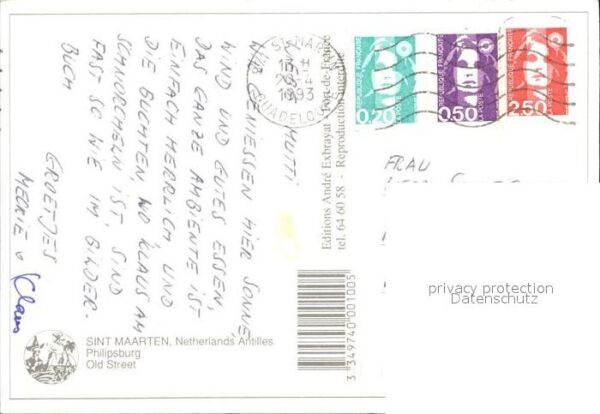 MUTTI
WIR GENIESSEN HIER SONNE,
WIND UND GUTES ESSEN,
DAS GANZE AMBIENTE IST
EINFACH HERRLICH UND
DIE BUCHTEN, WO KLAUS AM
SCHNORCHELN IST, SIND
FAST SO WIE IM BILDER-
BUCH
GROETJES
MECKIE &
Klaus
SINT MAARTEN, Netherlands Antilles
Philipsburg
Old Street
Editions André Exbrayat - Fort-de-France
tel. 64 60 58 - Reproduction interdite
3 349740 001005
1993
RÉPUBLIQUE FRANÇAISE
LA POSTE
0,20
RÉPUBLIQUE FRANÇAISE
LA POSTE
0,50
RÉPUBLIQUE FRANÇAISE
LA POSTE
2,50
FRAU
privacy protection
Datenschutz